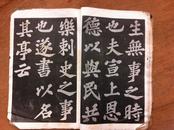 生無事之時
也夫宣上恩
德以與民共
樂刺史之事
也遂書以名
其亭云